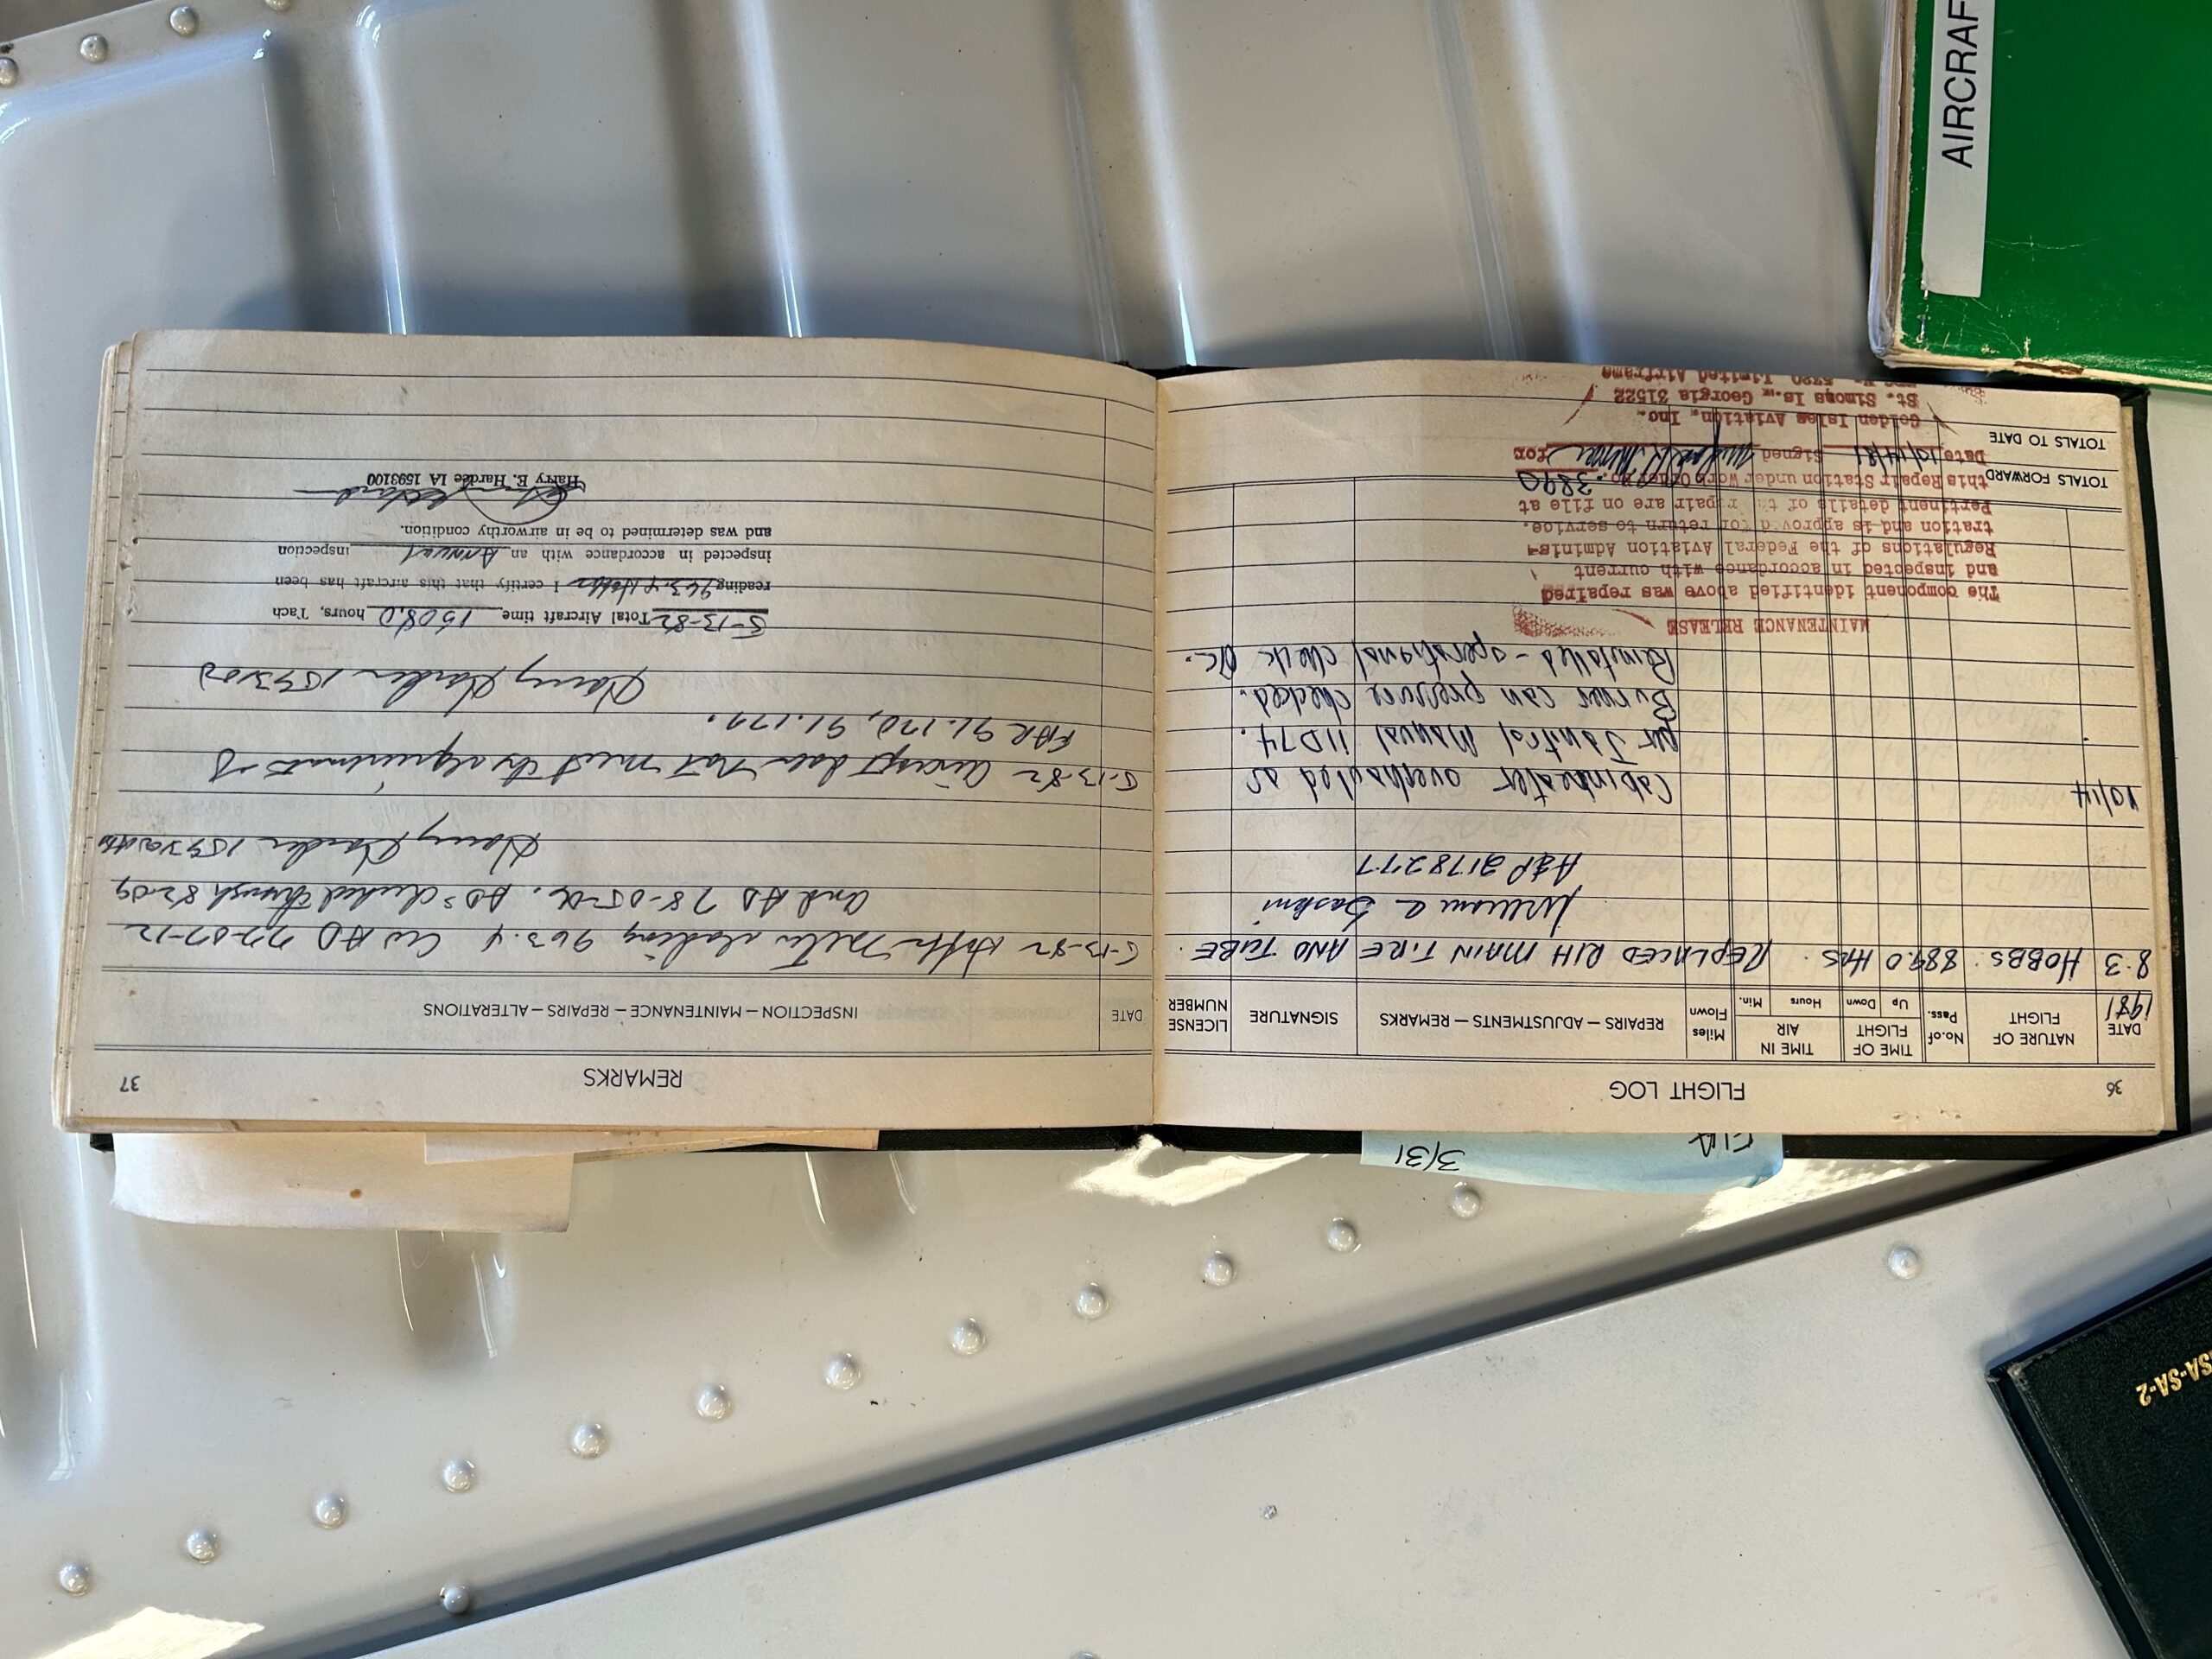 AIRCRAF
36
FLIGHT LOG
DATE
NATURE OF FLIGHT
No. of Pass.
TIME OF FLIGHT
Up
Down
TIME IN AIR
Hours
Min.
Miles Flown
REPAIRS — ADJUSTMENTS — REMARKS
SIGNATURE
LICENSE NUMBER
1981
8-3 HOBBS. 889.0 HRS. REPLACED R/H MAIN TIRE AND TUBE.
William
A&P 2178277
10/14 Cabin heater overhauled as
per Janitrol Manual 11D74.
Burner can pressure checked.
Reinstalled - operational check O/C.
MAINTENANCE RELEASE
The component identified above was repaired
and inspected in accordance with current
Regulations of the Federal Aviation Adminis-
tration and is approved for return to service.
Pertinent details of this repair are on file at
this Repair Station under Work Order No. 3890
Date 10/14/81 Signed for
Golden Isles Aviation, Inc.
St. Simons Is., Georgia 31522
Limited Airframe
TOTALS FORWARD
TOTALS TO DATE
37
REMARKS
DATE
INSPECTION — MAINTENANCE — REPAIRS — ALTERATIONS
5-13-82 Hobbs Meter reading 963.4 CW AD 77-07-12
and AD 78-05-06. ADs checked through 82-09
Harry Hardee
5-13-82 Aircraft does not meet the requirements of
FAR 91.170, 91.177.
Harry Hardee
5-13-82 Total Aircraft time 1508.0 hours, Tach
reading 963.4 Hobbs I certify that this aircraft has been
inspected in accordance with an Annual inspection
and was determined to be in airworthy condition.
Harry E. Hardee IA 1593100
FUA
3/31
SA-SA-2